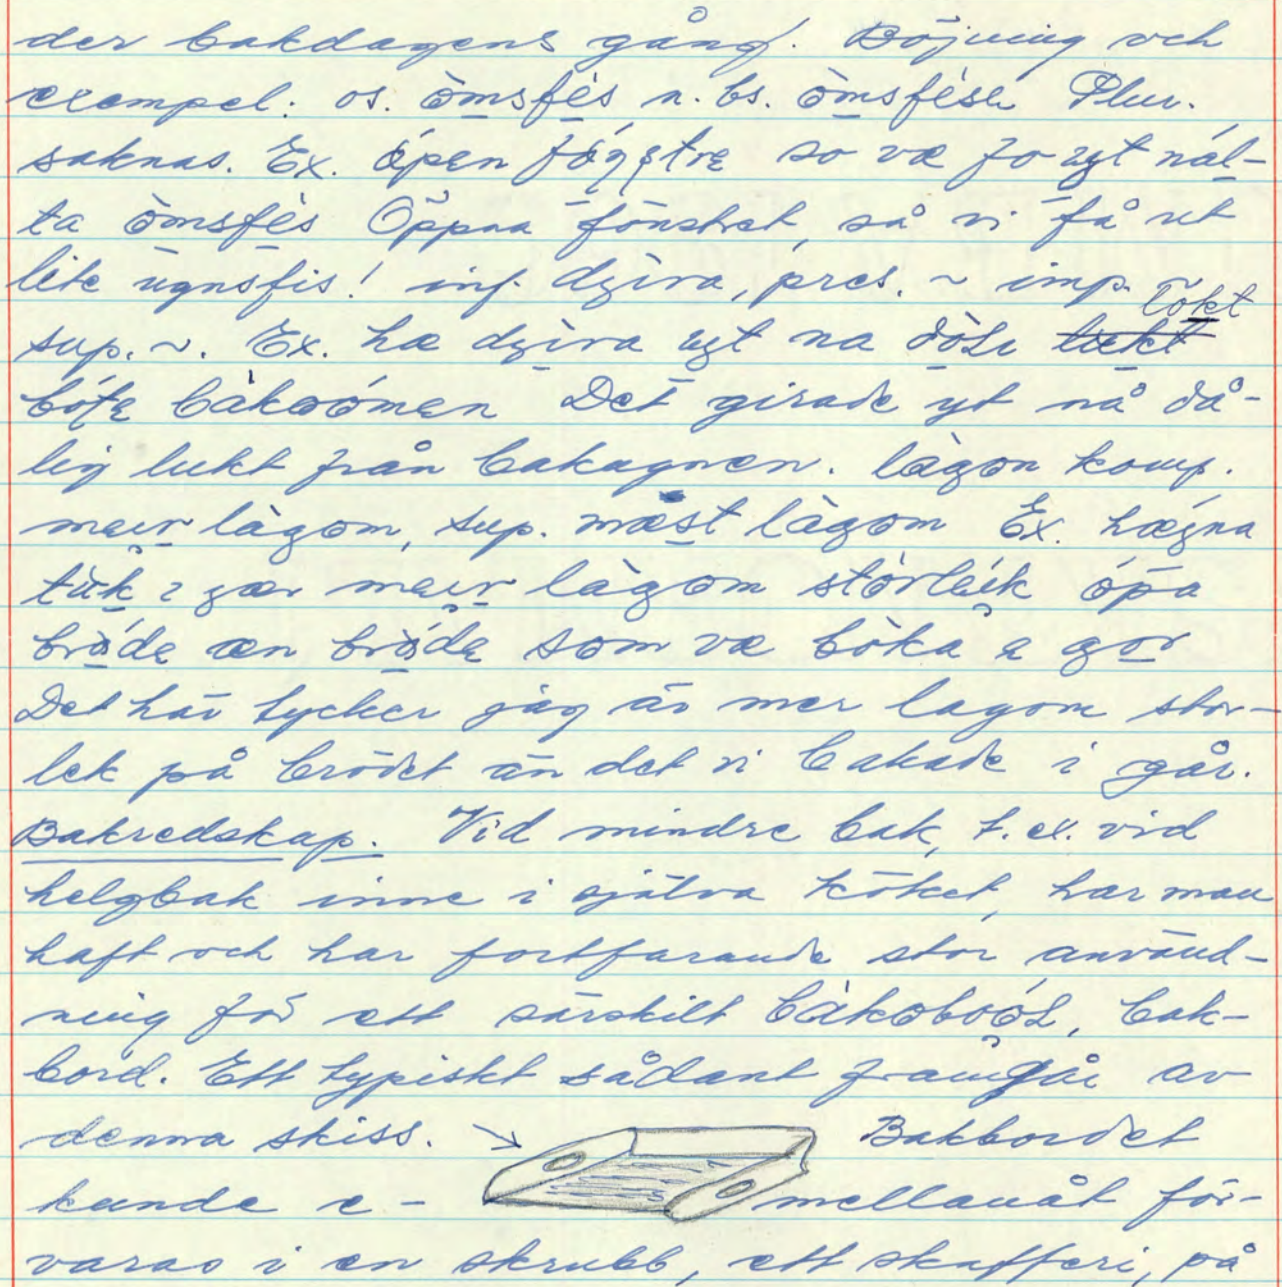 der bakdagens gång. Böjning och
exempel: os. òmsfės n. bs. òmsfėsı Plur.
saknas. Ex. ópen fóɳstrə so væ fo ygt nál-
ta òmsfės Öppna fönstret, så vi få ut
lite ugnsfis! inf. dzìra, pres. ~ imp. ~
sup. ~. Ex. hæ dzìra ygt na dòlı lökt
bótə bàkoómən Det girade yt nå då-
lig lukt från bakugnen. làgom komp.
meır làgom, sup. mæst làgom Ex. hægna
tùk ı jær meır làgom stórleık ópa
bróde æn bróde som væ bòka ə gor
Det här tycker jag är mer lagom stor-
lek på brödet än det vi bakade i går.
Bakredskap. Vid mindre bak, t.ex. vid
helgbak inne i själva köket, har man
haft och har fortfarande stor använd-
ning för ett särskilt bàkoboóL, bak-
bord. Ett typiskt sådant framgår av
denna skiss. → Bakbordet
kunde e- mellanåt för-
varas i en skrubb, ett skafferi, på